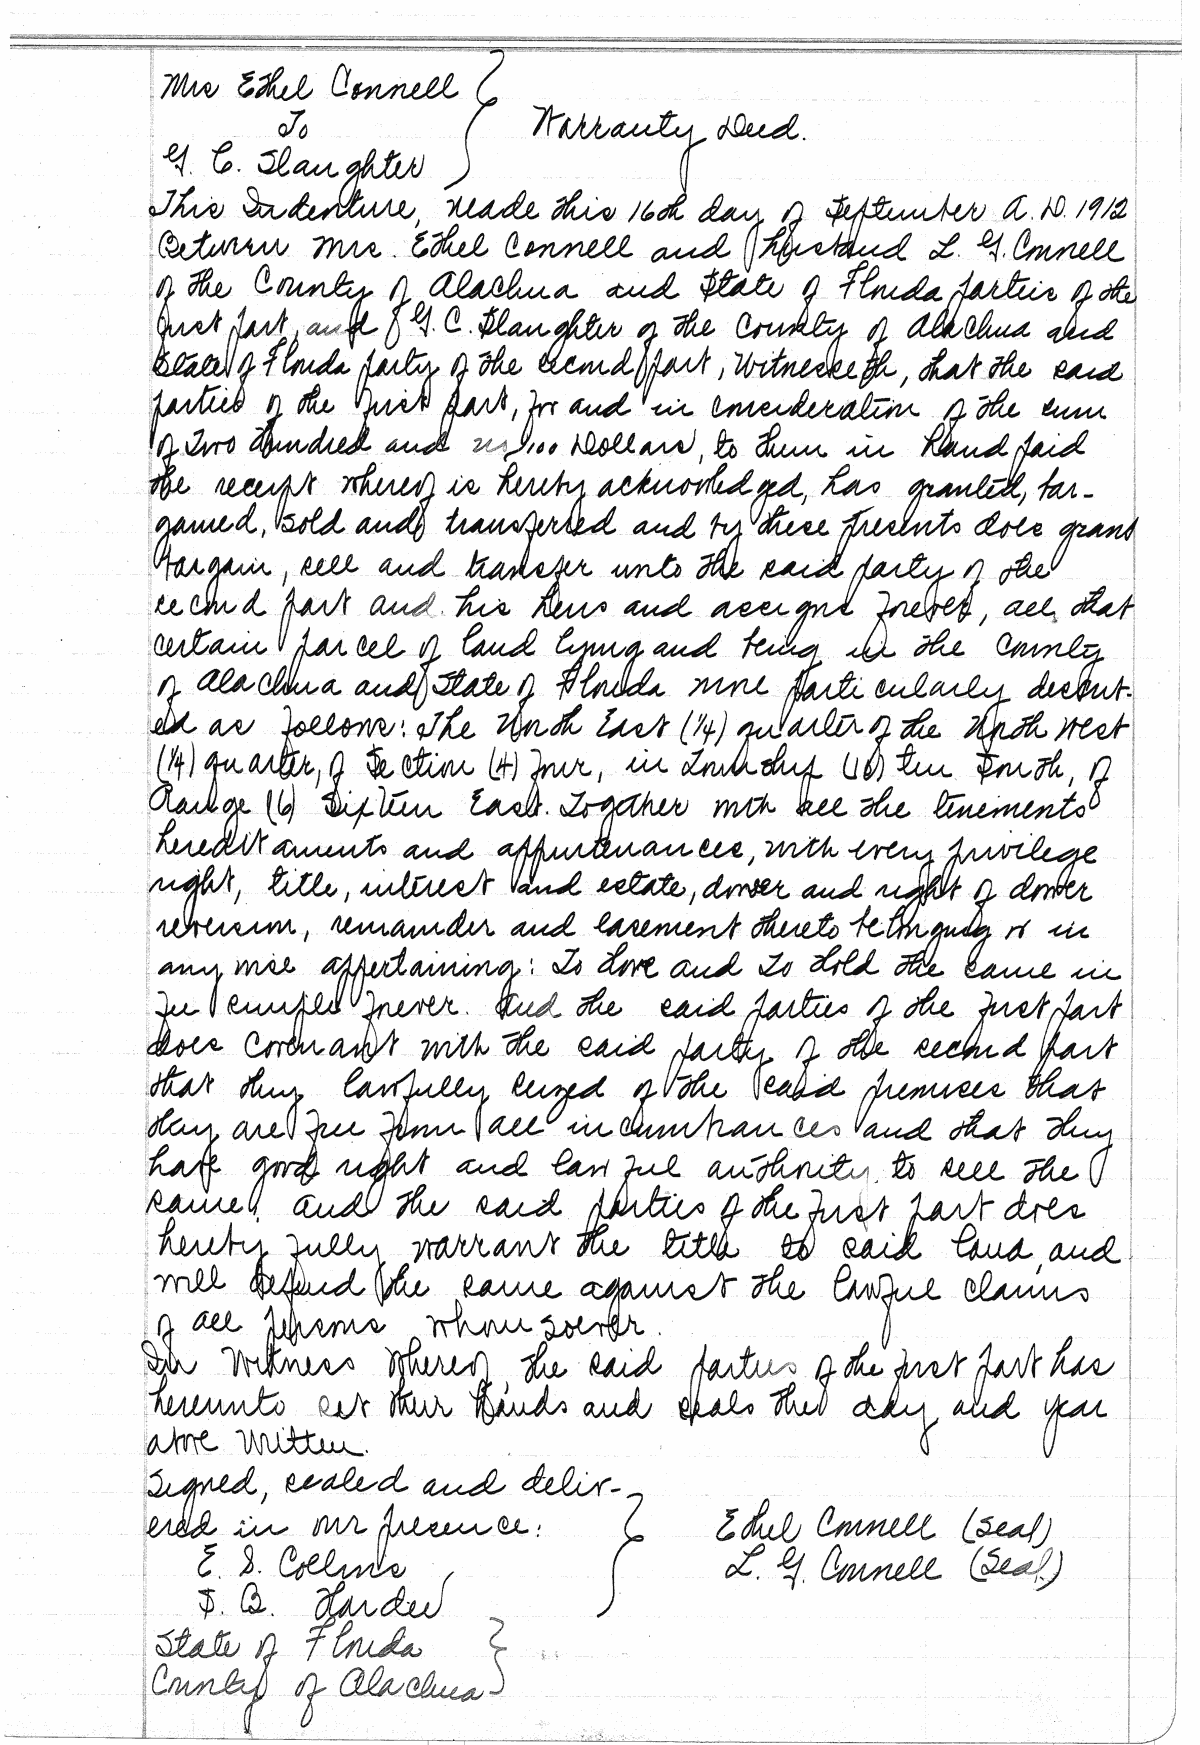 Mrs Ethel Connell
To
Warranty Deed.
G. C. Slaughter
This Indenture, made this 16th day of September A. D. 1912
Between Mrs. Ethel Connell and husband L. G. Connell
of the County of Alachua and State of Florida parties of the
first part, and G. C. Slaughter of the County of Alachua and
State of Florida party of the second part, Witnesseth, that the said
parties of the first part, for and in consideration of the sum
of Two Hundred and no/100 Dollars, to them in hand paid
the receipt whereof is hereby acknowledged, has granted, bar-
gained, sold and transferred and by these presents does grant
bargain, sell and transfer unto the said party of the
second part and his heirs and assigns forever, all that
certain parcel of land lying and being in the County
of Alachua and State of Florida more particularly describ-
ed as follows: The North East (1/4) quarter of the North West
(1/4) quarter, of Section (4) four, in Township (10) ten South, of
Range (16) Sixteen East. Together with all the tenements
hereditaments and appurtenances, with every privilege
right, title, interest and estate, dower and right of dower
reversion, remainder and easement thereto belonging or in
any wise appertaining: To Have and To Hold the same in
fee simple forever. And the said parties of the first part
does covenant with the said party of the second part
that they lawfully seized of the said premises that
they are free from all incumbrances and that they
have good right and lawful authority to sell the
same, and the said parties of the first part does
hereby fully warrant the title to said land, and
will defend the same against the lawful claims
of all persons whomsoever.
In Witness Whereof, the said parties of the first part has
hereunto set their hands and seals the day and year
above written.
Signed, sealed and deliv-
ered in our presence:
Ethel Connell (Seal)
E. S. Collins
L. G. Connell (Seal)
S. B. Hardee
State of Florida
County of Alachua